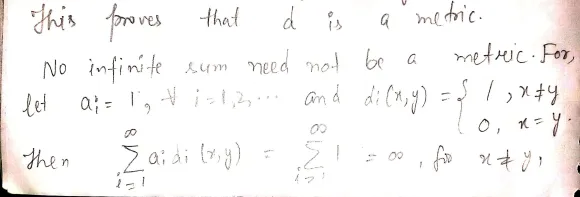 This proves that d is a metric.
No infinite sum need not be a metric. For,
let ai = 1, ∀ i=1,2,... and di(x,y) = { 1, x≠y
0, x=y.
Then ∞∑i=1 ai di (x,y) = ∞∑i=1 1 = ∞, for x≠y,